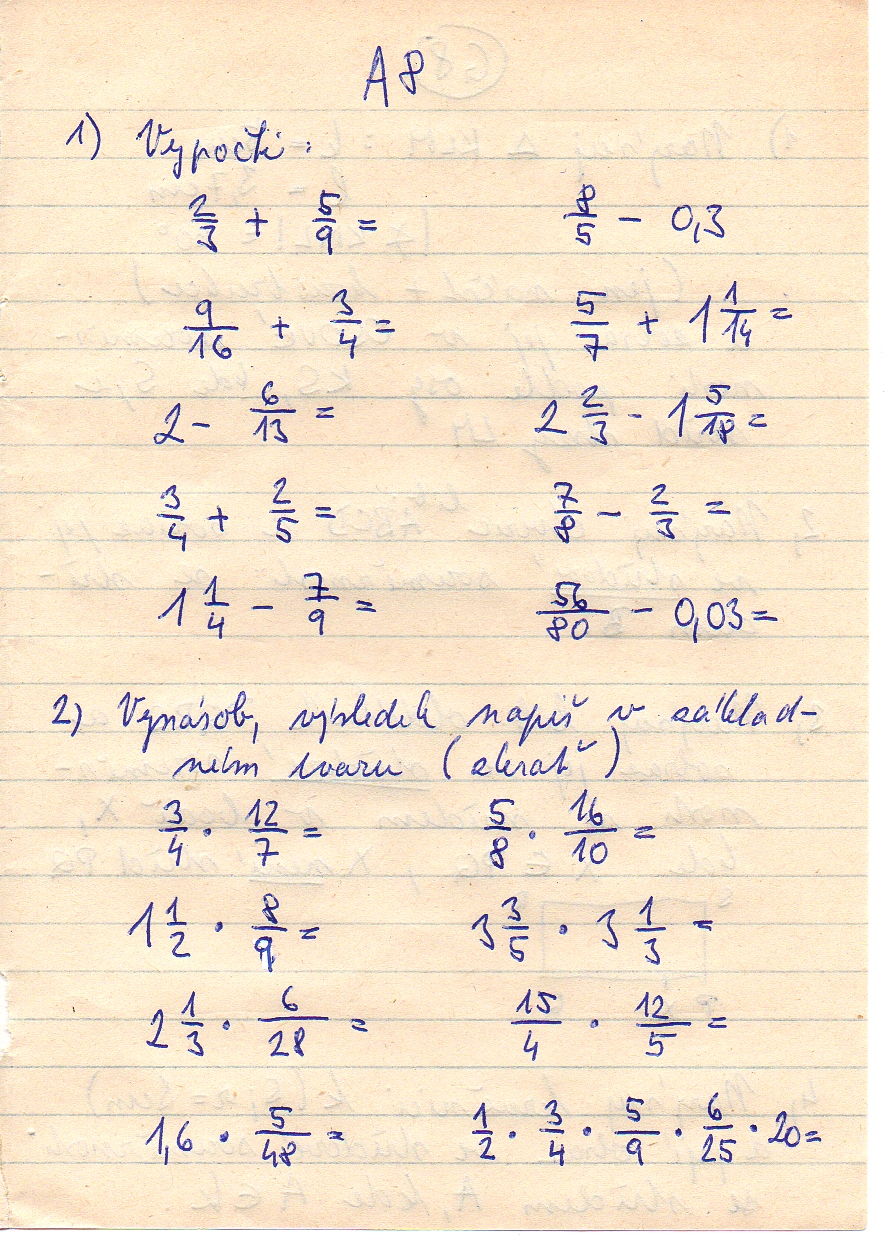 A8
1) Vypočti:
2/3 + 5/9 = 8/5 - 0,3
9/16 + 3/4 = 5/7 + 1 1/14 =
2 - 6/13 = 2 2/3 - 1 5/18 =
3/4 + 2/5 = 7/8 - 2/3 =
1 1/4 - 7/9 = 56/80 - 0,03 =
2) Vynásob, výsledek napiš v základ-
ním tvaru (zkrať)
3/4 · 12/7 = 5/8 · 16/10 =
1 1/2 · 8/9 = 3 3/5 · 3 1/3 =
2 1/3 · 6/28 = 15/4 · 12/5 =
1,6 · 5/48 = 1/2 · 3/4 · 5/9 · 6/25 · 20 =